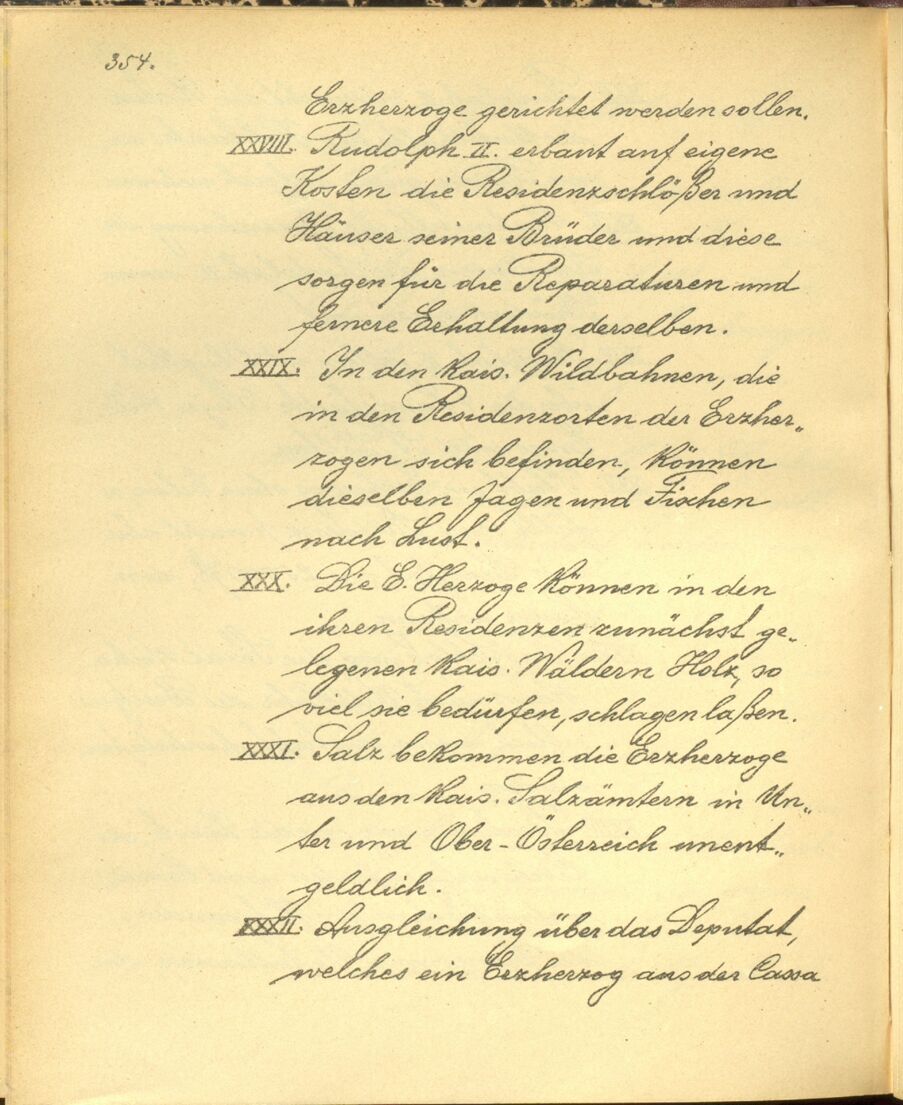 354.
Erzherzoge gerichtet werden sollen.
XXVIII. Rudolph II. erbaut auf eigene
Kosten die Residenzschlößer und
Häuser seiner Brüder und diese
sorgen für die Reparaturen und
fernere Erhaltung derselben.
XXIX. In den Kais. Wildbahnen, die
in den Residenzorten der Erzher„
zogen sich befinden, können
dieselben Jagen und Fischen
nach Lust.
XXX. Die E. Herzoge können in den
ihren Residenzen zunächst ge„
legenen Kais. Wäldern Holz, so
viel sie bedürfen, schlagen laßen.
XXXI. Salz bekommen die Erzherzoge
aus den Kais. Salzämtern in Un„
ter und Ober-Österreich unent„
geldlich.
XXXII. Ausgleichung über das Deputat,
welches ein Erzherzog aus der Cassa